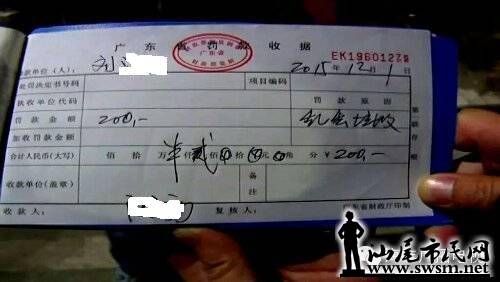 广东省罚款收据
EK19601278
缴款单位(人): 刘 2015年12月1日
处罚决定书号码 项目编码
执收单位代码 罚款原因
罚款金额 200,-
加收罚款金额
合计人民币(大写) 佰拾万仟贰佰0拾0元0角分 ¥200,-
收款单位(盖章) 备注
收款人: 复核人: 广东省财政厅印制
汕尾市民网
www.swsm.net